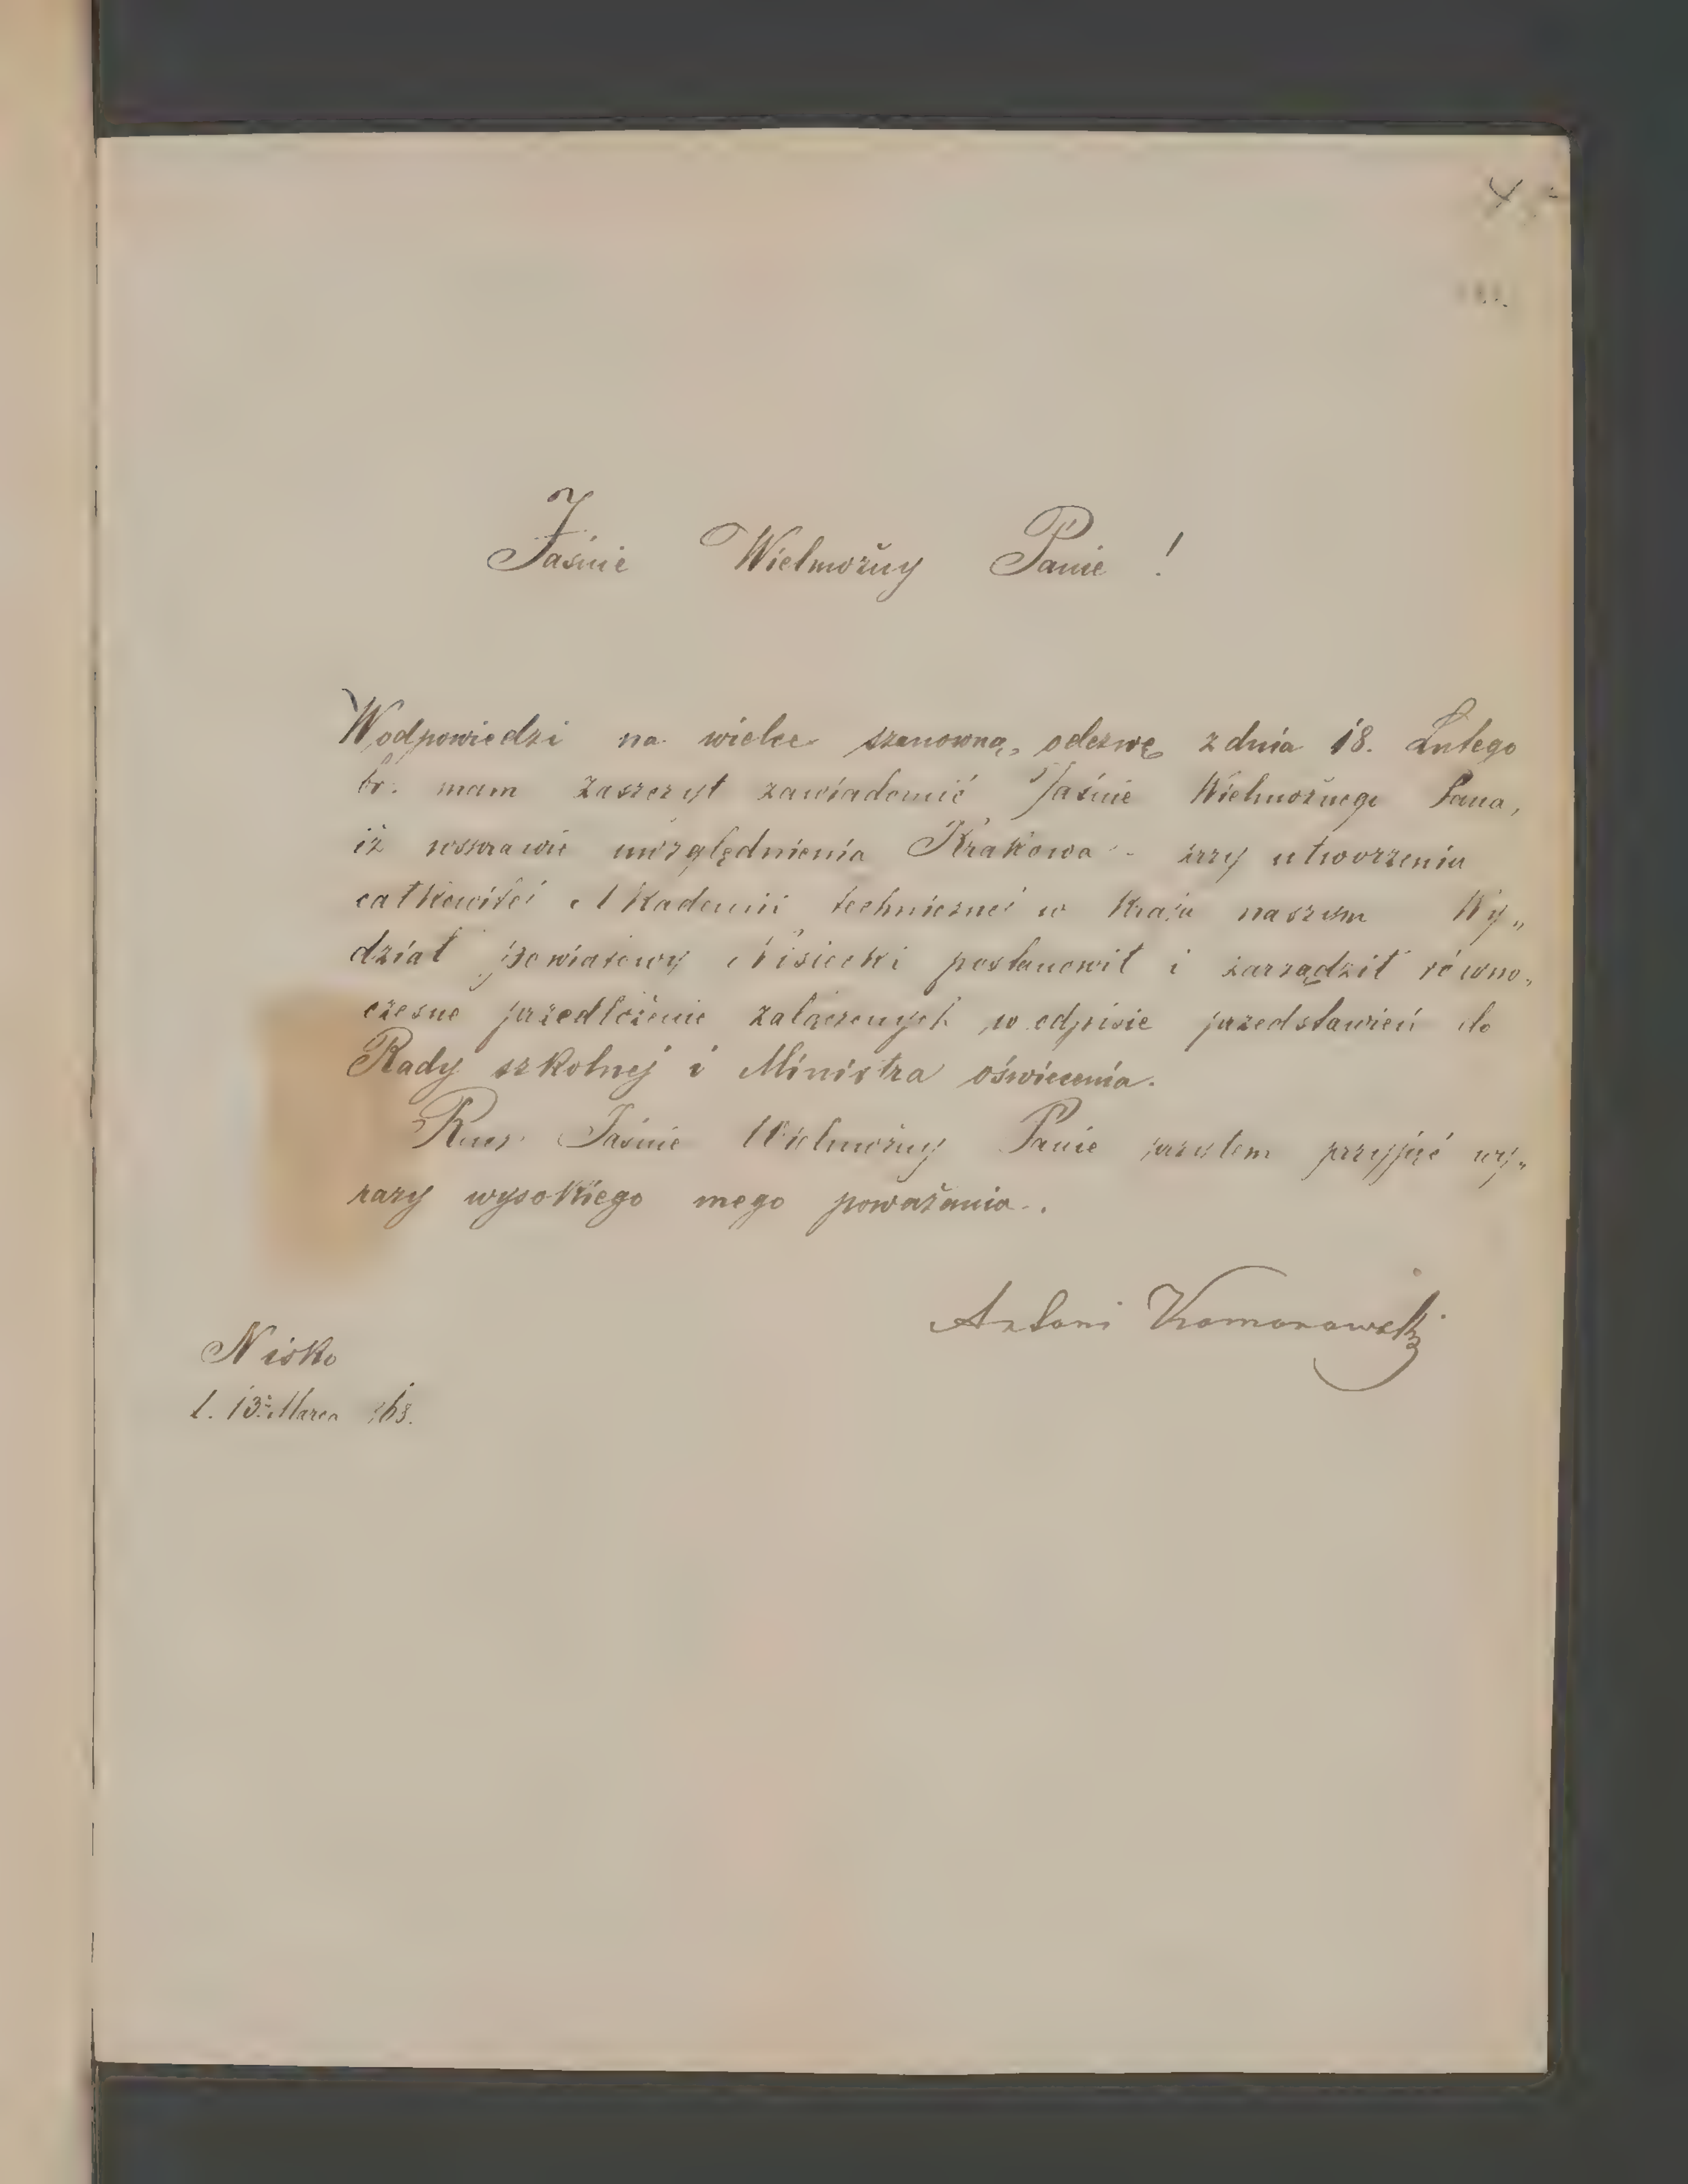 Jaśnie Wielmożny Panie !
W odpowiedzi na wielce szanowną odezwę z dnia 18. Lutego
br. mam zaszczyt zawiadomić Jaśnie Wielmożnego Pana,
iż wsprawie uwzględnienia Krakowa przy utworzeniu
całkowitej Akademii technicznej w Kraju naszym Wy„
dział powiatowy Nisiecki postanowił i zarządził równo„
czesne przedłożenie załączonych w odpisie przedstawień do
Rady szkolnej i Ministra oświecenia.
Racz Jaśnie Wielmożny Panie przytem przyjąć wy„
razy wysokiego mego poważania.
Antoni Komorowski
Nisko
13. Marca